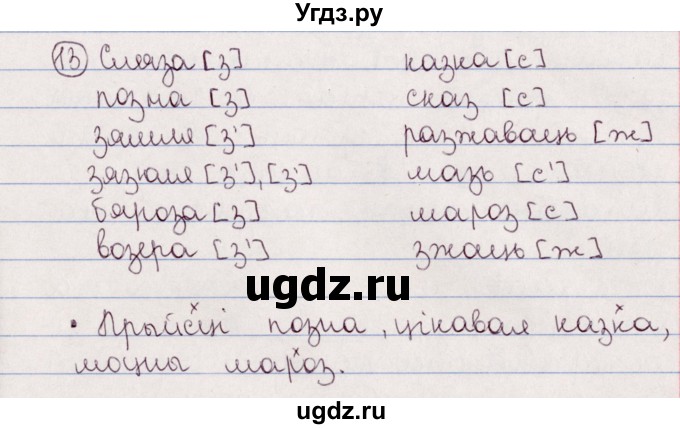 Угдз.ру
13 Сляза [з] казка [с]
позна [з] сказ [с]
зямля [з'] разжаваць [ж]
зязюля [з'], [з'] мазь [с']
бяроза [з] мароз [с]
возера [з'] зжаць [ж]
ugdz.ru
• Прыйсці позна, цікавая казка,
моцны мароз.
ugdz.ru